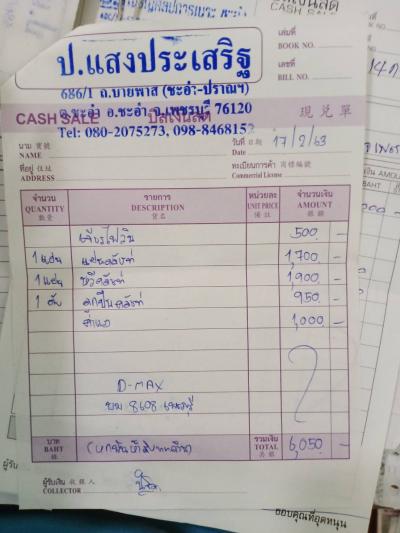 CASH SALE
เล่มที่
BOOK NO.
เลขที่
BILL NO.
ป.แสงประเสริฐ
686/1 ถ.บายพาส (ชะอำ-ปราณฯ)
อ.ชะอำ จ.เพชรบุรี 76120
CASH SALE บิลเงินสด 現兌單
Tel: 080-2075273, 098-8468152
นาม 寶號
NAME
วันที่ 日期 17/2/63
Date
ที่อยู่ 住址
ADDRESS
ทะเบียนการค้า 商標編號
Commercial License
จำนวน รายการ หน่วยละ จำนวนเงิน
QUANTITY DESCRIPTION UNIT PRICE AMOUNT
數量 貨名 銀碼
500 -
1 แผ่น แผ่นคลัทช์ 1,700 -
1 แผ่น หวีคลัทช์ 1,900 -
1 ตับ ลูกปืนคลัทช์ 950 -
ค่าแรง 1,000 -
D-MAX
บม 8608 เพชรบุรี
บาท (หกพันห้าสิบบาทถ้วน) รวมเงิน 6,050 -
BAHT TOTAL
銖
ผู้รับเงิน 收銀人
COLLECTOR
ขอบคุณที่อุดหนุน